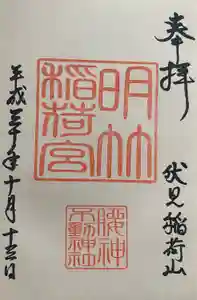 奉拝
伏見稲荷山
明竹
稲荷宮
腰神
不動神社
平成三十年十月十三日